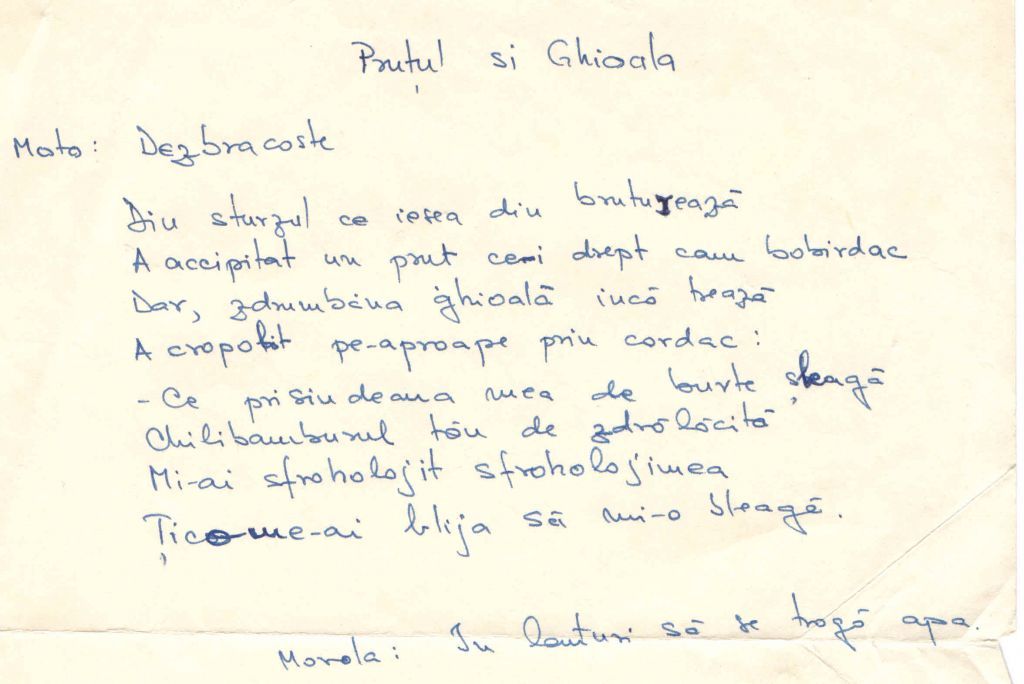 Pruțul si Ghioala
Moto: Dezbracoste
Din sturzul ce iesea din bruturează
A accipitat un prut ce-i drept cam bobirdac
Dar, zdrumbina ghioală incă trează
A cropotit pe-aproape prin cordac:
- Ce prisindeana mea de burte șleagă
Chilibambusul tău de zdrălăcită
Mi-ai sfroholojit sfroholojinea
Țicome-ai blija să mi-o bleagă.
Morola: In lanturi să se tragă apa.